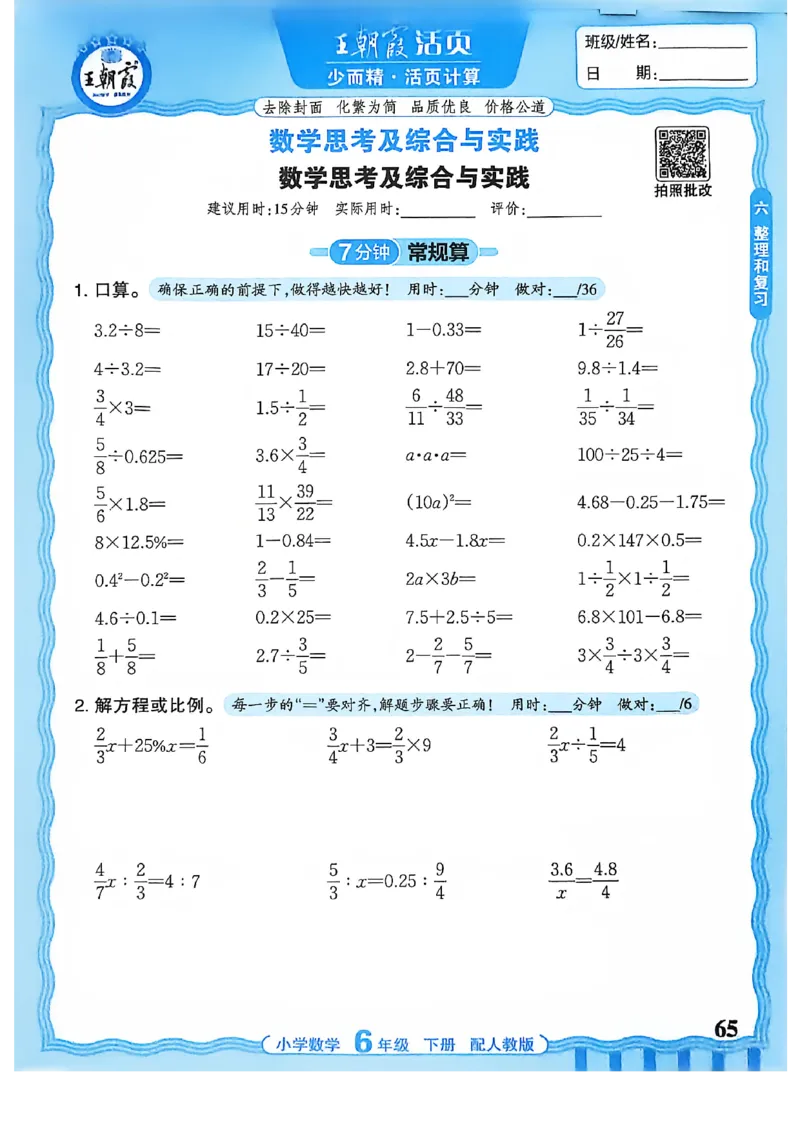 王朝霞
王朝霞活页
少而精·活页计算
班级/姓名:________
日　期:________
去除封面　化繁为简　品质优良　价格公道
数学思考及综合与实践
数学思考及综合与实践
拍照批改
建议用时:15分钟　实际用时:________　评价:________
六　整理和复习
7分钟 常规算
1. 口算。 确保正确的前提下,做得越快越好!　用时:___分钟　做对:___/36
3.2÷8=　15÷40=　1-0.33=　1÷27/26=
4÷3.2=　17÷20=　2.8+70=　9.8÷1.4=
3/4×3=　1.5÷1/2=　6/11÷48/33=　1/35÷1/34=
5/8÷0.625=　3.6×3/4=　a·a·a=　100÷25÷4=
5/6×1.8=　11/13×39/22=　(10a)²=　4.68-0.25-1.75=
8×12.5%=　1-0.84=　4.5x-1.8x=　0.2×147×0.5=
0.4²-0.2²=　2/3-1/5=　2a×3b=　1÷1/2×1÷1/2=
4.6÷0.1=　0.2×25=　7.5+2.5÷5=　6.8×101-6.8=
1/8+5/8=　2.7÷3/5=　2-2/7-5/7=　3×3/4÷3×3/4=
2. 解方程或比例。 每一步的“=”要对齐,解题步骤要正确!　用时:___分钟　做对:___/6
2/3x+25%x=1/6　3/4x+3=2/3×9　2/3x÷1/5=4
4/7x:2/3=4:7　5/3:x=0.25:9/4　3.6/x=4.8/4
65
小学数学 6年级 下册 配人教版